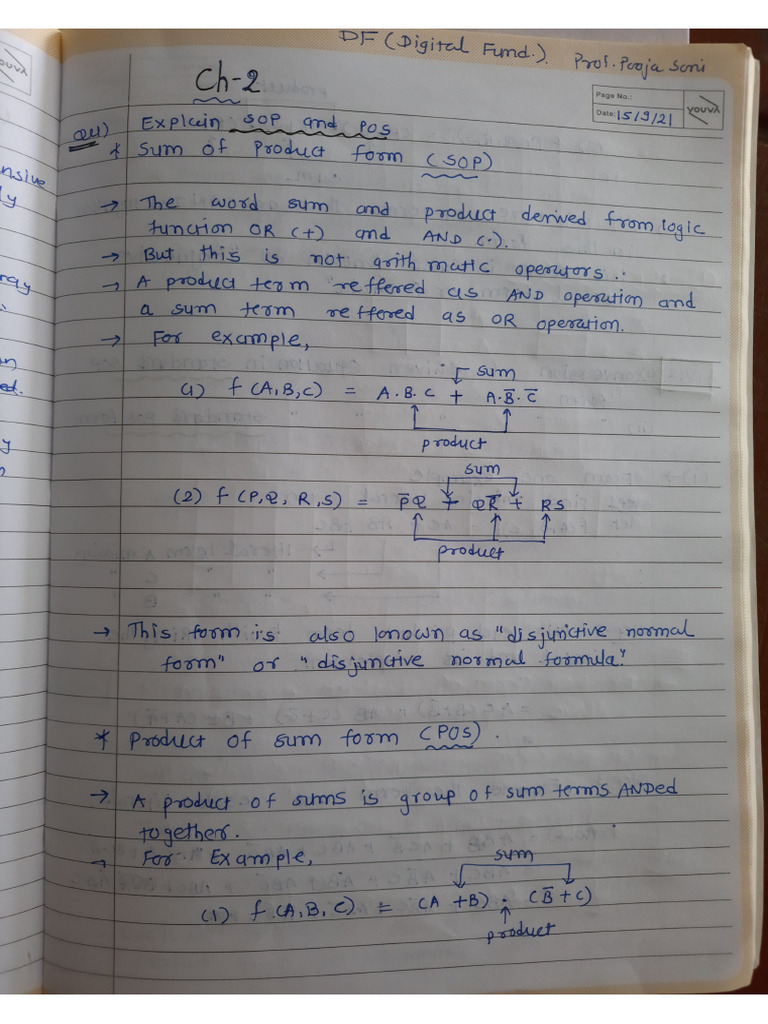 DF (Digital Fund.). Prof. Pooja Soni
youva
Ch-2
Page No.:
Date: 15/9/21
youva
Q1) Explain SOP and POS
* Sum of Product form (SOP)
nsive
ly
→ The word sum and product derived from logic
function OR (+) and AND (·).
→ But this is not arithmatic operators.
→ A product term reffered as AND operation and
ray
a sum term reffered as OR operation.
→ For example,
ed.
sum
(1) f (A,B,C) = A.B.C + A.B̅.C̅
product
sum
(2) f (P,Q,R,S) = P̅Q + QR̅ + RS
product
→ This form is also known as "disjunctive normal
form" or "disjunctive normal formula."
* Product of sum form (POS).
→ A product of sums is group of sum terms ANDed
together.
→ For Example,
sum
(1) f (A,B,C) = (A+B) . (B̅+C)
product